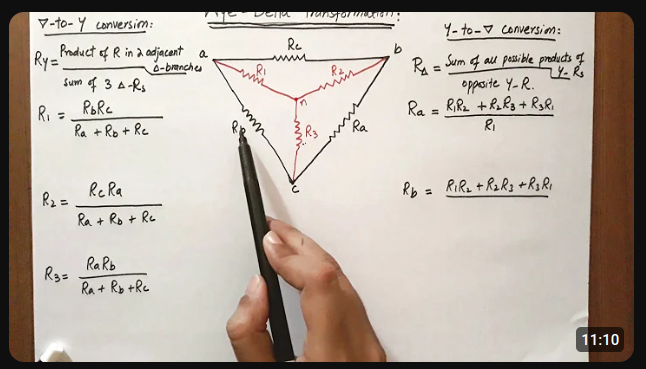 Wye-Delta Transformation:
∇-to-Y conversion:
Ry = Product of R in 2 adjacent Δ-branches
sum of 3 Δ-Rs
R1 = RbRc
Ra + Rb + Rc
R2 = RcRa
Ra + Rb + Rc
R3 = RaRb
Ra + Rb + Rc
a
Rc
b
R1
R2
n
Rb
R3
Ra
c
Y-to-∇ conversion:
RΔ = Sum of all possible products of Y-Rs
opposite Y-R.
Ra = R1R2 + R2R3 + R3R1
R1
Rb = R1R2 + R2R3 + R3R1
11:10